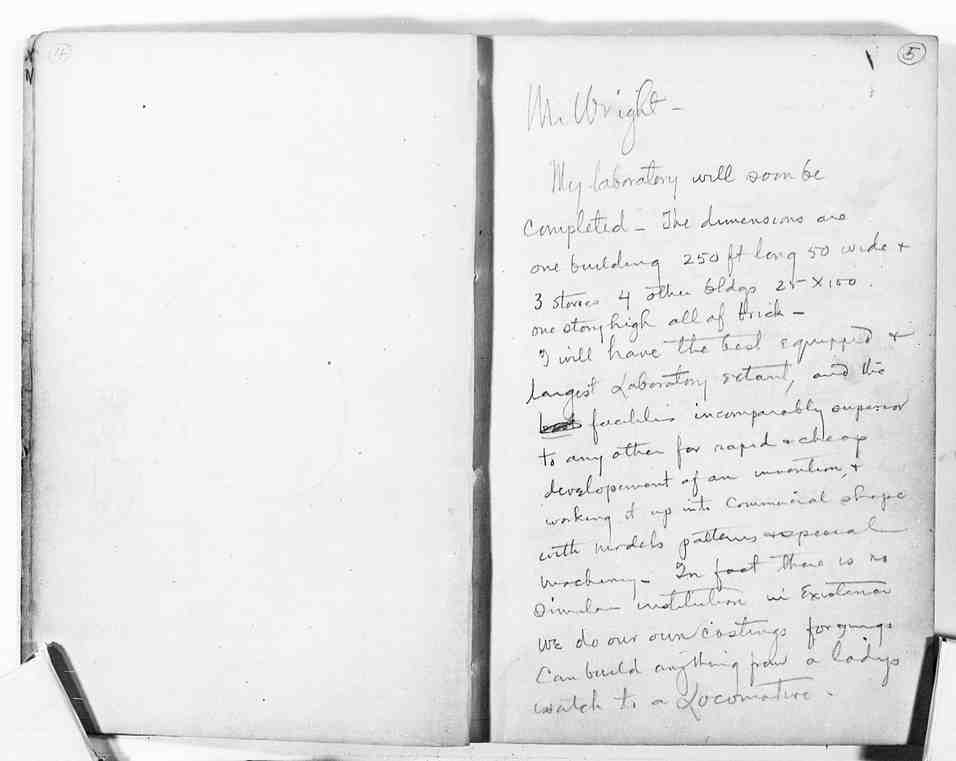 4
5
Mr Wright -
My laboratory will soon be
Completed - The dimensions are
one building 250 ft long 50 wide &
3 stories 4 other bldgs 25 X 100.
one story high all of brick -
I will have the best equipped &
largest Laboratory extant, and the
facilities incomparably superior
to any other for rapid & cheap
developement of an invention, &
working it up into Commercial shape
with models patterns & special
machinery - In fact there is no
similar institution in Existence
We do our own castings forgings
Can build anything from a ladys
watch to a Locomotive.